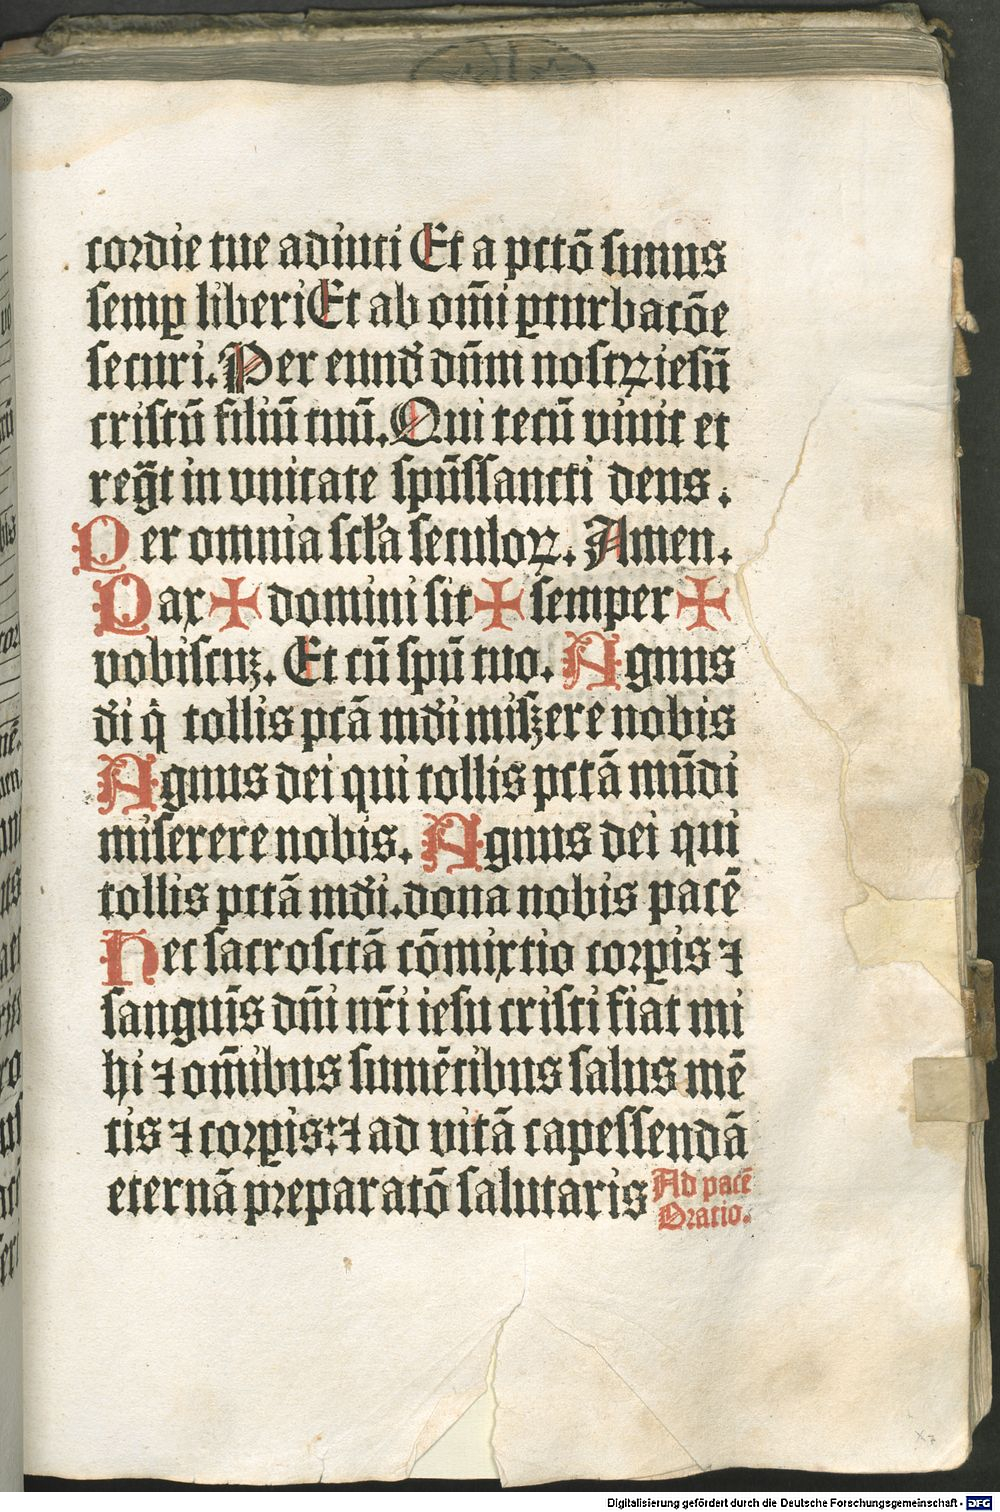 cordie tue adiuti Et a pctō simus
semꝑ liberi Et ab om̄i ꝑturbacōe
securi. Per eund̄ dn̄m nostꝝ iesū
cristū filiū tuū. Qui tecū viuit et
reg̃t in vnitate spūssancti deus.
Per omnia scl̄a seculoꝝ. Amen.
Pax ✠ domini sit ✠ semper ✠
vobiscuꝫ. Et cū spū tuo. Agnus
d̄i q̇ tollis pctā md̄i misꝫere nobis
Agnus dei qui tollis pctā mūdi
miserere nobis. Agnus dei qui
tollis pctā md̄i. dona nobis pacē
Hec sacrosctā cōmixtio corꝑis ⁊
sanguīs dn̄i nr̄i iesu cristi fiat mi
hi ⁊ om̄ibus sumētibus salus mē
tis ⁊ corꝑis: ⁊ ad vitā capessendā
eternā preparatō salutaris Ad pacē
Oratio.
Digitalisierung gefördert durch die Deutsche Forschungsgemeinschaft - DFG